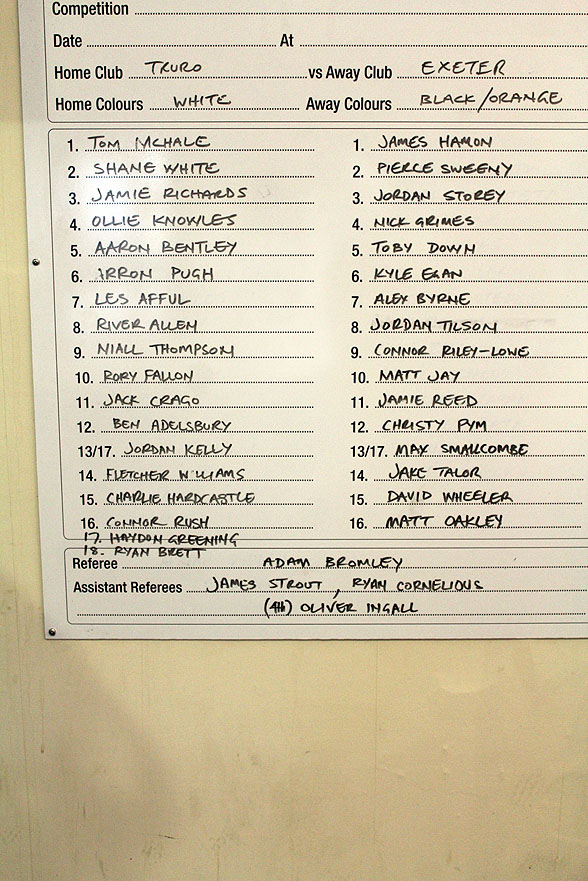 Competition
Date At
Home Club TRURO vs Away Club EXETER
Home Colours WHITE Away Colours BLACK/ORANGE
1. TOM MCHALE 1. JAMES HAMON
2. SHANE WHITE 2. PIERCE SWEENY
3. JAMIE RICHARDS 3. JORDAN STOREY
4. OLLIE KNOWLES 4. NICK GRIMES
5. AARON BENTLEY 5. TOBY DOWN
6. ARRON PUGH 6. KYLE EGAN
7. LES AFFUL 7. ALEX BYRNE
8. RIVER ALLEN 8. JORDAN TILSON
9. NIALL THOMPSON 9. CONNOR RILEY-LOWE
10. RORY FALLON 10. MATT JAY
11. JACK CRAGO 11. JAMIE REED
12. BEN ADELSBURY 12. CHRISTY PYM
13/17. JORDAN KELLY 13/17. MAX SMALLCOMBE
14. FLETCHER WILLIAMS 14. JAKE TALOR
15. CHARLIE HARDCASTLE 15. DAVID WHEELER
16. CONNOR RUSH 16. MATT OAKLEY
17. HAYDON GREENING
18. RYAN BRETT
Referee ADAM BROMLEY
Assistant Referees JAMES STROUT, RYAN CORNELIOUS
(4th) OLIVER INGALL